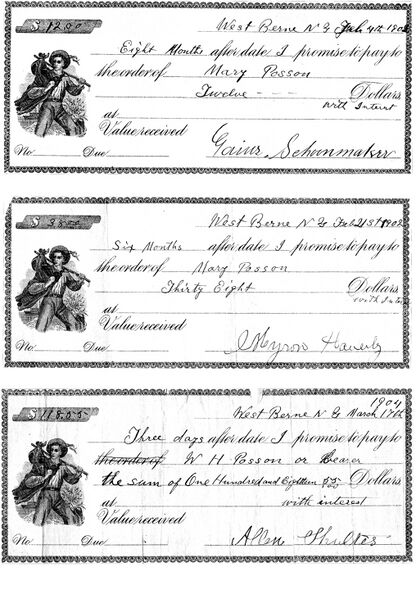 $ 12.00
West Berne N Y Feb 4th 1902
Eight Months after date I promise to pay to
the order of Mary Posson
Twelve - - - Dollars
with Interest
at
Value received
Gaius Schoonmaker
No. Due
$ 38.00
West Berne N Y Feb 21st 1902
Six Months after date I promise to pay to
the order of Mary Posson
Thirty Eight Dollars
with Inte
at
Value received
Myron Haverly
No. Due
$ 118.55
1904
West Berne N Y March 17th
Three days after date I promise to pay to
the order of W H Posson or bearer
the sum of One Hundred and Eighteen 55 Dollars
at with interest
Value received
Allen Shultes
No. Due